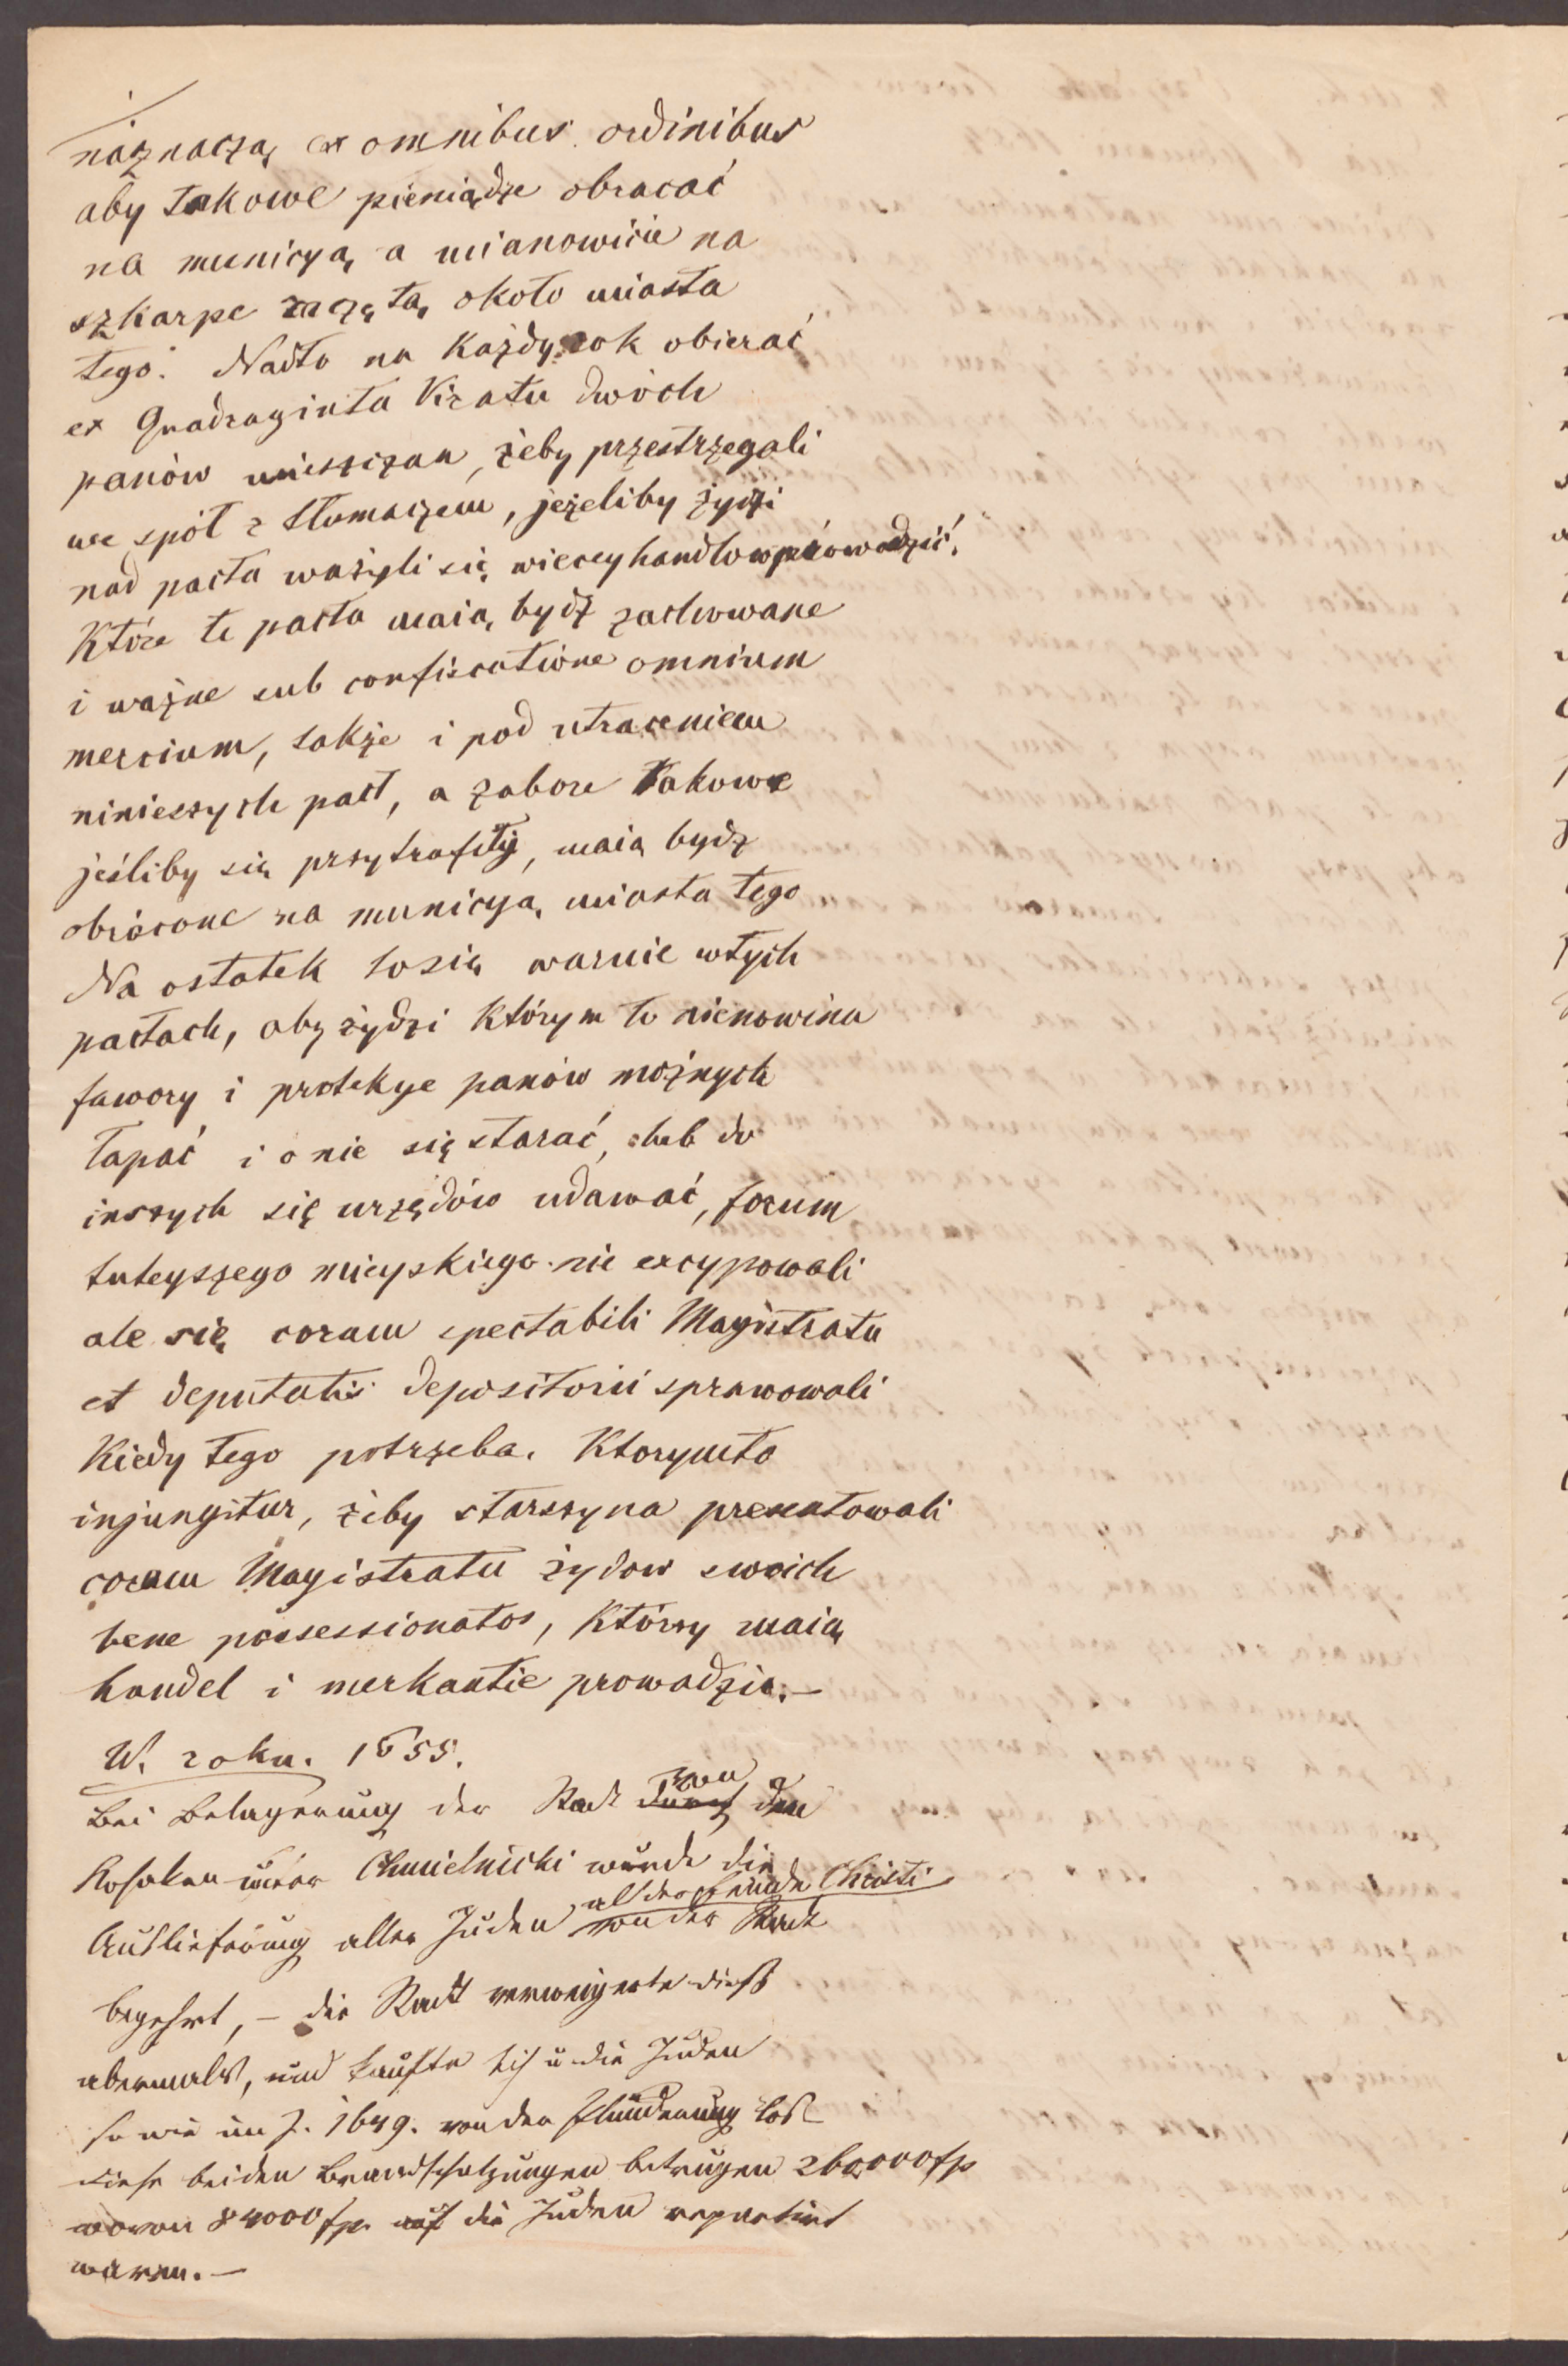 naznaczą ex omnibus ordinibus
aby takowe pieniądze obracać
na municyą a mianowicie na
szkarpe zaczętą około miasta
tego. Nadto na każdy rok obierać
ex Quadraginta Viratu dwóch
panów mieszczan, żeby przestrzegali
we spół z tłumaczem, jeżeliby żydzi
nad pacta ważyli się wiecey handlow prowadzić.
Które te pacta maią bydź zachowane
i ważne sub confiscatione omnium
mercium, także i pod utraceniem
niniesszych pact, a zabore takowe
jeśliby się przytrafiły, maią bydz
obrócone na municyą miasta tego
Na ostatek to się warnie w tych
pactach, aby żydzi którym to nienowina
fawory i protekye panów możnych
łapać i o nie się starać, lub do
inszych się urzędów udawać, forum
tuteyszego mieyskiego nie excypowali
ale się coram spectabili Magistratu
et deputatis depositorii sprawowali
Kiedy tego potrzeba. Ktorymto
injungitur, żeby starszyna prezentowali
coram Magistratu żydow swoich
bene possessionatos, którzy maią
handel i merkantie prowadzic.—
W. roku. 1655.
Bei Belagerung der Stadt durch von den
Kosaken unter Chmielnicki wurde die
Auslieferung aller Juden als der Feinde Christi von der Stadt
begehrt, – die Stadt verweigerte dieß
abermals, und kaufte sich u die Juden
so wie im J. 1649. von der Plünderung los
diese beiden Brandschatzungen betrugen 260000 fp
wovon 84000 fp auf die Juden repartirt
waren.—